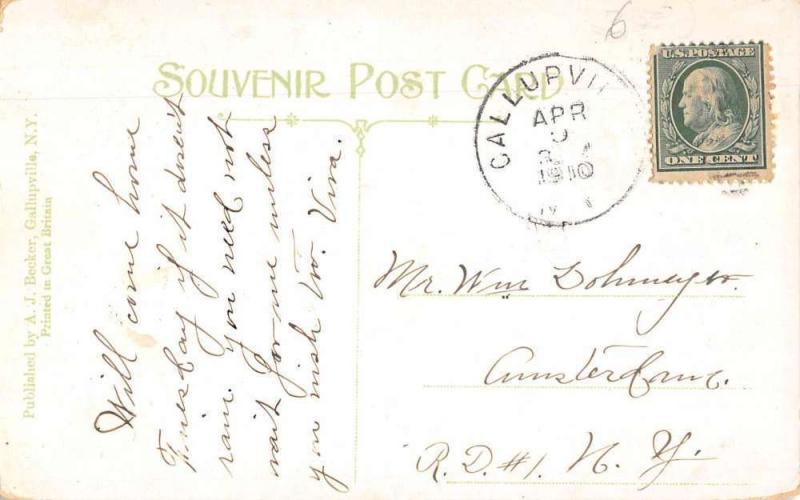 6
SOUVENIR POST CARD
U.S. POSTAGE
ONE CENT
GALLUPVI
APR
1910
Mr. Wm Dohmeyer.
Amsterdam.
R.D. #1. N. Y.
Will come home
Tuesday if it doesn't
rain. You need not
wait for me unless
you wish to. Viva.
Published by A. J. Becker, Gallupville, N.Y.
Printed in Great Britain